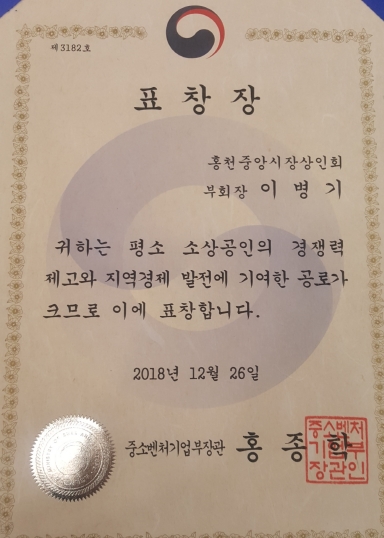 제3182호
표창장
홍천중앙시장상인회
부회장 이병기
귀하는 평소 소상공인의 경쟁력
제고와 지역경제 발전에 기여한 공로가
크므로 이에 표창합니다.
2018년 12월 26일
중소벤처기업부장관 홍종학
중소벤처
기업부
장관인